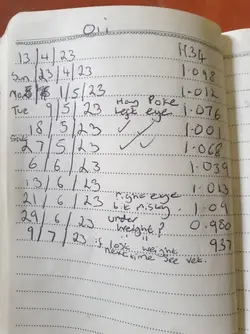 Oli
13/4/23 1134
Sun 23/4/23 1.098
Mon 1/5/23 1.012
Tue 9/5/23 Hay Poke left eye 1.076
18/5/23 1.001
27/5/23 1.068
6/6/23 1.039
13/6/23 1.013
21/6/23 Right eye bit misty 1.09
29/6/23 under weight? 0.980
9/7/23 if loss weight next time see vet. 937